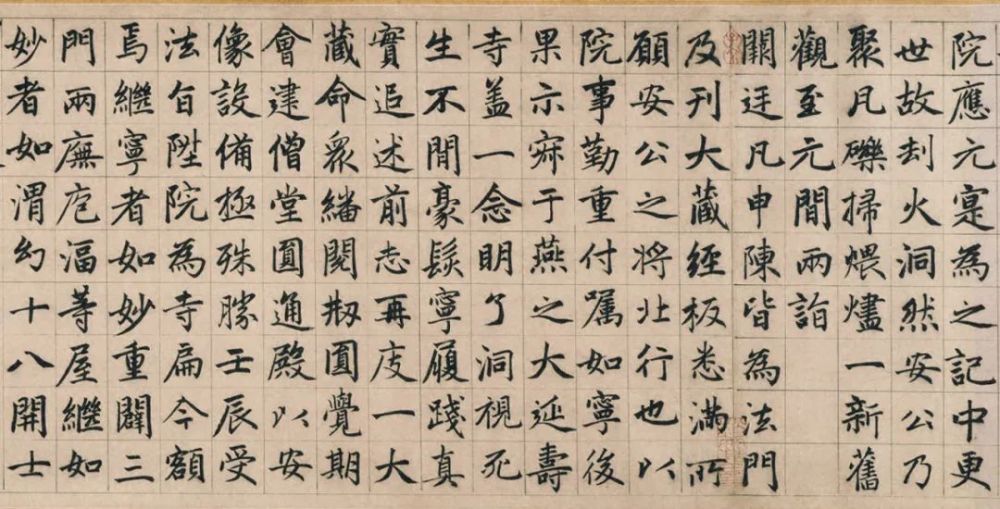 院應元寔為之記中更
世故刦火洞然安公乃
聚凡礫掃煨燼一新舊
觀至元間兩詣
闕廷凡申陳皆為法門
及刊大藏經板悉滿所
願安公之將北行也以
院事勤重付囑如寧後
果示寂于燕之大延壽
寺盖一念明了洞視死
生不間豪髮寧履踐真
實追述前志再庋一大
藏命衆繙閱剏圓覺期
會建僧堂圓通殿以安
像設備極殊勝壬辰受
法旨陞院為寺扁今額
焉繼寧者如妙重闢三
門兩廡庖湢等屋繼如
妙者如渭幻十八開士